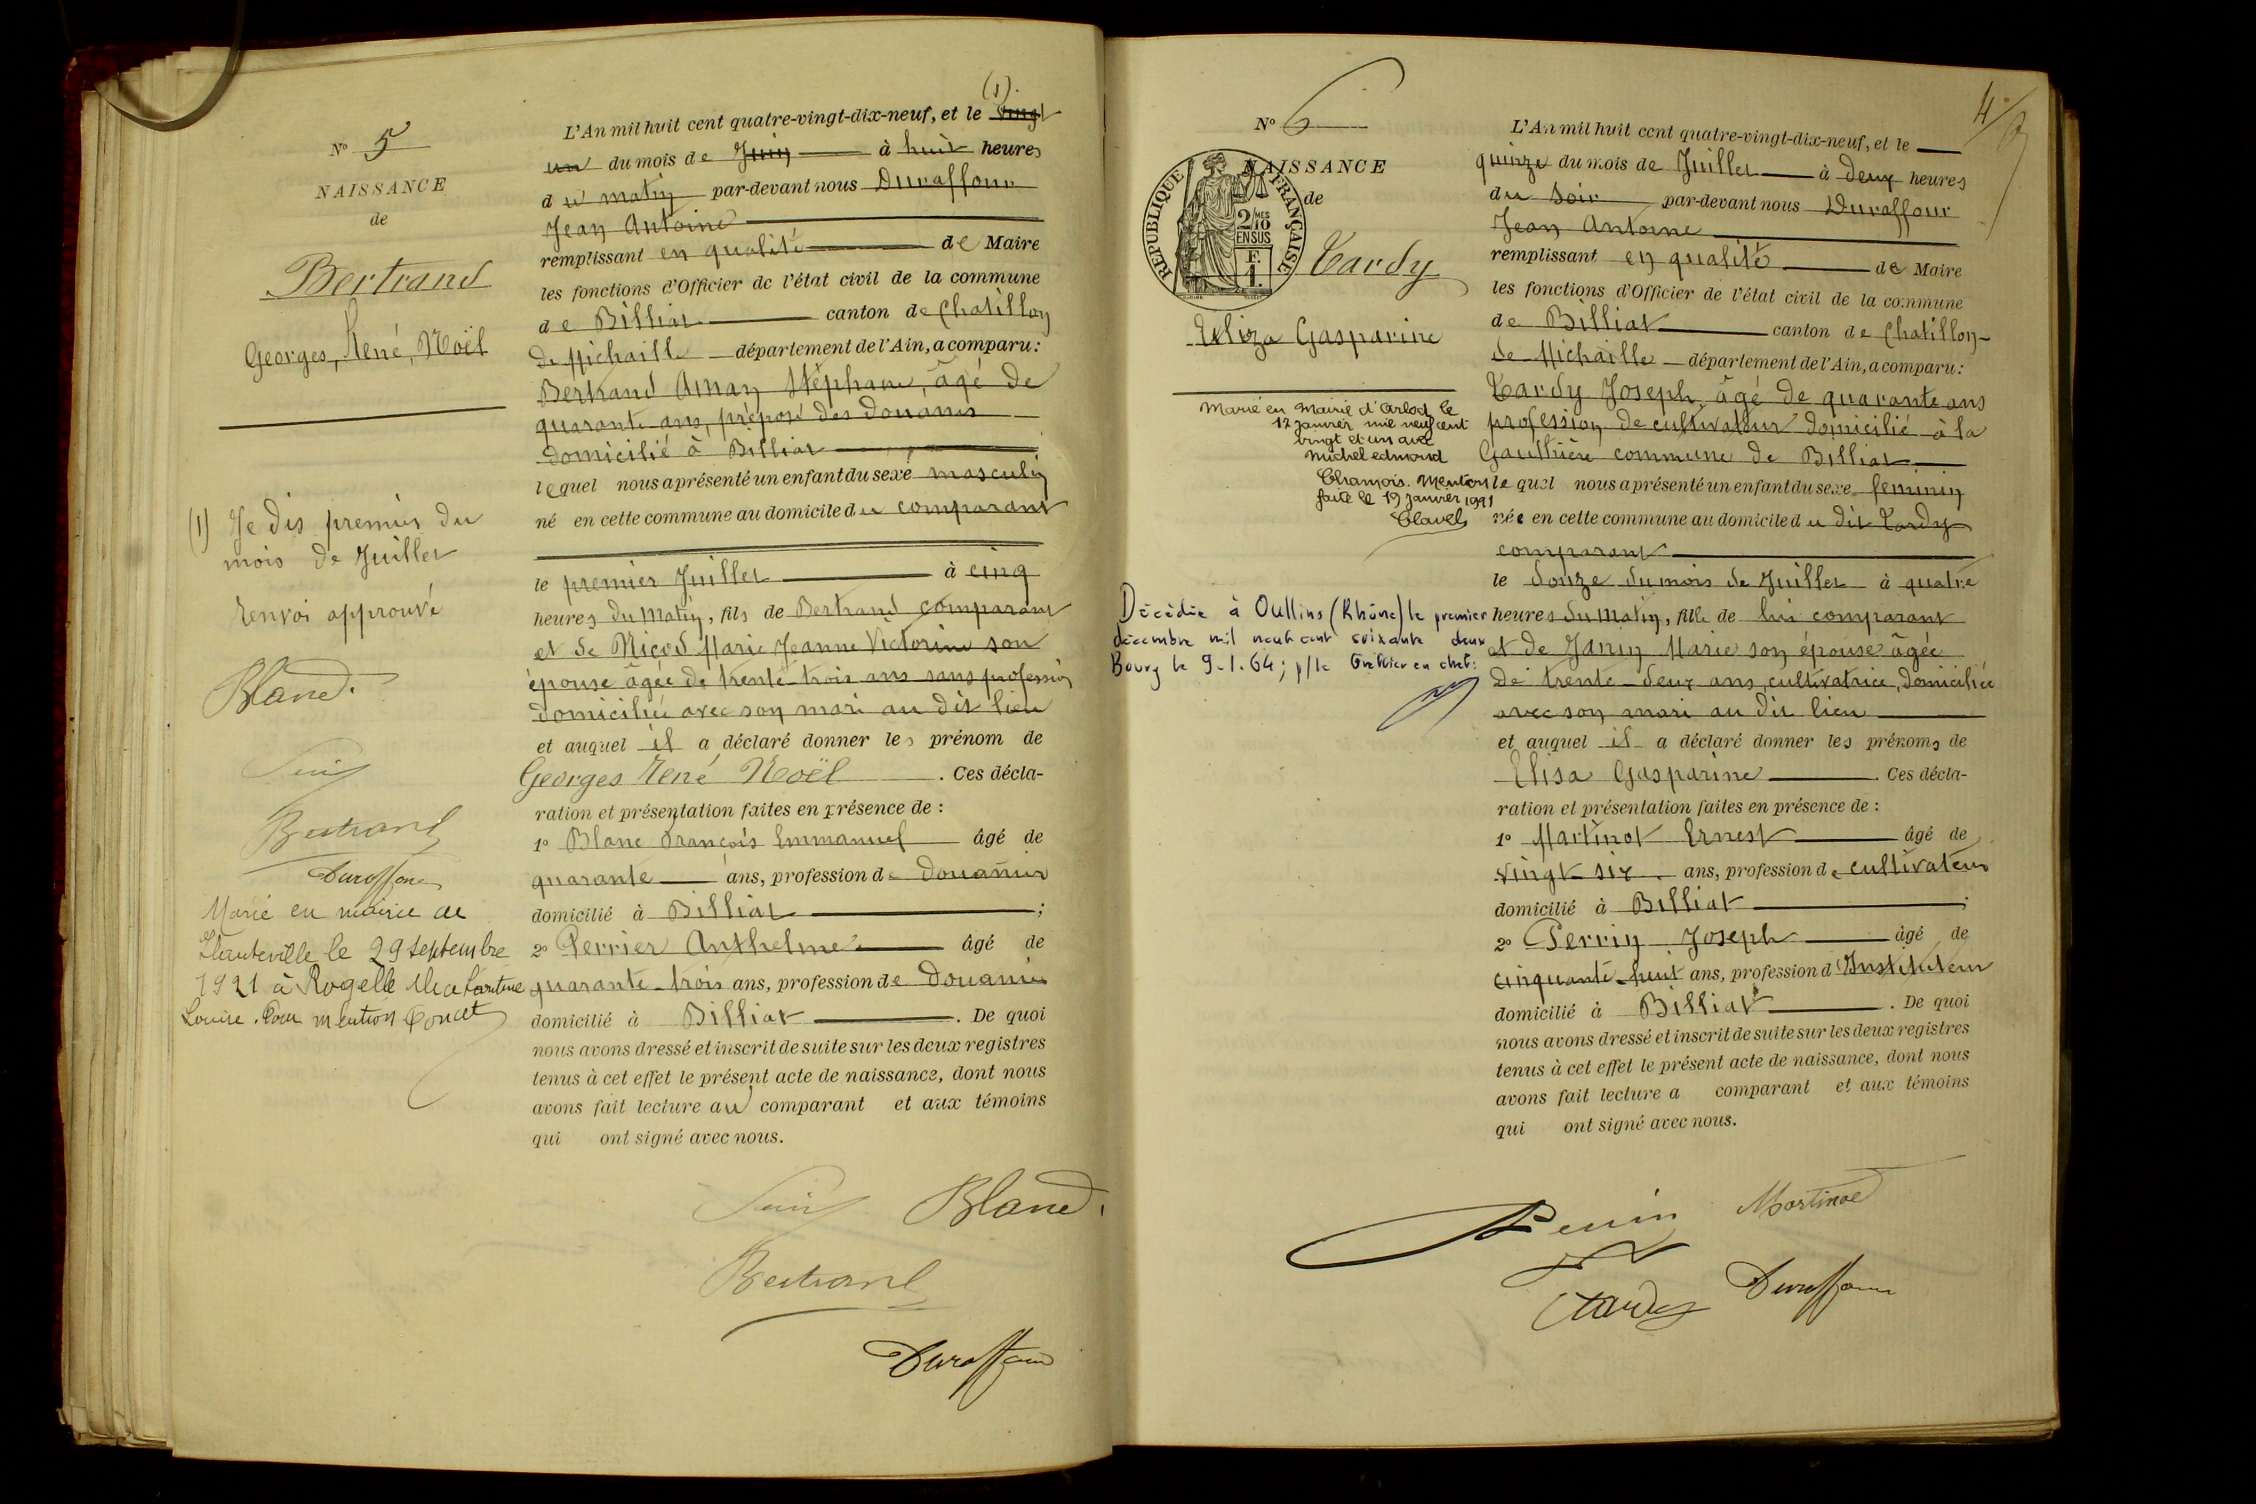 (1).
L'An mil huit cent quatre-vingt-dix-neuf, et le vingt
No 5
un du mois de Juin à huit heures
NAISSANCE
du matin par-devant nous Duraffour
de
Jean Antoine
remplissant en qualité de Maire
Bertrand
les fonctions d'Officier de l'état civil de la commune
de Billiat canton de Chatillon
Georges, René, Noël
de Michaille département de l'Ain, a comparu :
Bertrand Aman Stéphane, âgé de
quarante ans, préposé des douanes
domicilié à Billiat
lequel nous a présenté un enfant du sexe masculin
né en cette commune au domicile du comparant
(1) Je dis premier du
mois de Juillet
renvoi approuvé
le premier Juillet à cinq
heures du matin, fils de Bertrand comparant
et de Nicod Marie Jeanne Victorine son
épouse âgée de trente-trois ans sans profession
domiciliée avec son mari au dit lieu
Blanc.
et auquel il a déclaré donner les prénom de
Georges René Noël . Ces décla-
ration et présentation faites en présence de :
Bertrand
1o Blanc François Emmanuel âgé de
Duraffour
quarante ans, profession de douanier
domicilié à Billiat ;
Marié en mairie de
Hauteville le 29 septembre
1921 à Rogelle
Louise. Pour mention Poncet
2o Perrier Anthelme âgé de
quarante-trois ans, profession de douanier
domicilié à Billiat . De quoi
nous avons dressé et inscrit de suite sur les deux registres
tenus à cet effet le présent acte de naissance, dont nous
avons fait lecture au comparant et aux témoins
qui ont signé avec nous.
Blanc.
Bertrand
Duraffour
4
No 6
L'An mil huit cent quatre-vingt-dix-neuf, et le
NAISSANCE
quinze du mois de Juillet à deux heures
de
du soir par-devant nous Duraffour
REPUBLIQUE FRANÇAISE
2/10MES
EN SUS
F.
1.
Jean Antoine
Tardy
remplissant en qualité de Maire
les fonctions d'Officier de l'état civil de la commune
Eliza Gasparine
de Billiat canton de Chatillon-
de Michaille département de l'Ain, a comparu :
Tardy Joseph, âgé de quarante ans
profession de cultivateur domicilié à la
Gaulhière commune de Billiat
Marié en Mairie d'Arlod le
12 janvier mil neuf cent
vingt et un avec
Michel edmond
Chamois. Mention
faite le 19 janvier 1921
Clavel
lequel nous a présenté un enfant du sexe feminin
née en cette commune au domicile du dit Tardy
comparant
le douze du mois de Juillet à quatre
Décédée à Oullins (Rhône) le premier
décembre mil neuf cent soixante deux
Bourg le 9-1-64; p/le Greffier en chef:
heures du matin, fille de lui comparant
et de Janin Marie son épouse âgée
de trente-deux ans, cultivatrice, domiciliée
avec son mari au dit lieu
et auquel il a déclaré donner les prénoms de
Elisa Gasparine . Ces décla-
ration et présentation faites en présence de :
1o Martinot Ernest âgé de
vingt six ans, profession de cultivateur
domicilié à Billiat ;
2o Perrin Joseph âgé de
cinquante-huit ans, profession d'Instituteur
domicilié à Billiat . De quoi
nous avons dressé et inscrit de suite sur les deux registres
tenus à cet effet le présent acte de naissance, dont nous
avons fait lecture a comparant et aux témoins
qui ont signé avec nous.
Perrin Martinot
Tardy Duraffour